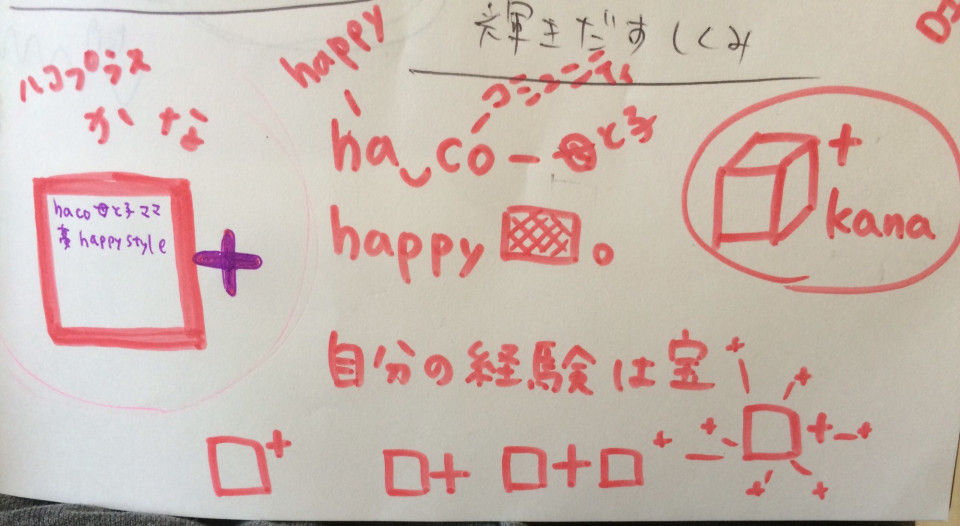 輝きだすしくみ
ハコプラス
かな
happy
コミュニティ
ha co - 母と子
happy
+
kana
haco 母と子ママ
happy style
+
自分の経験は宝